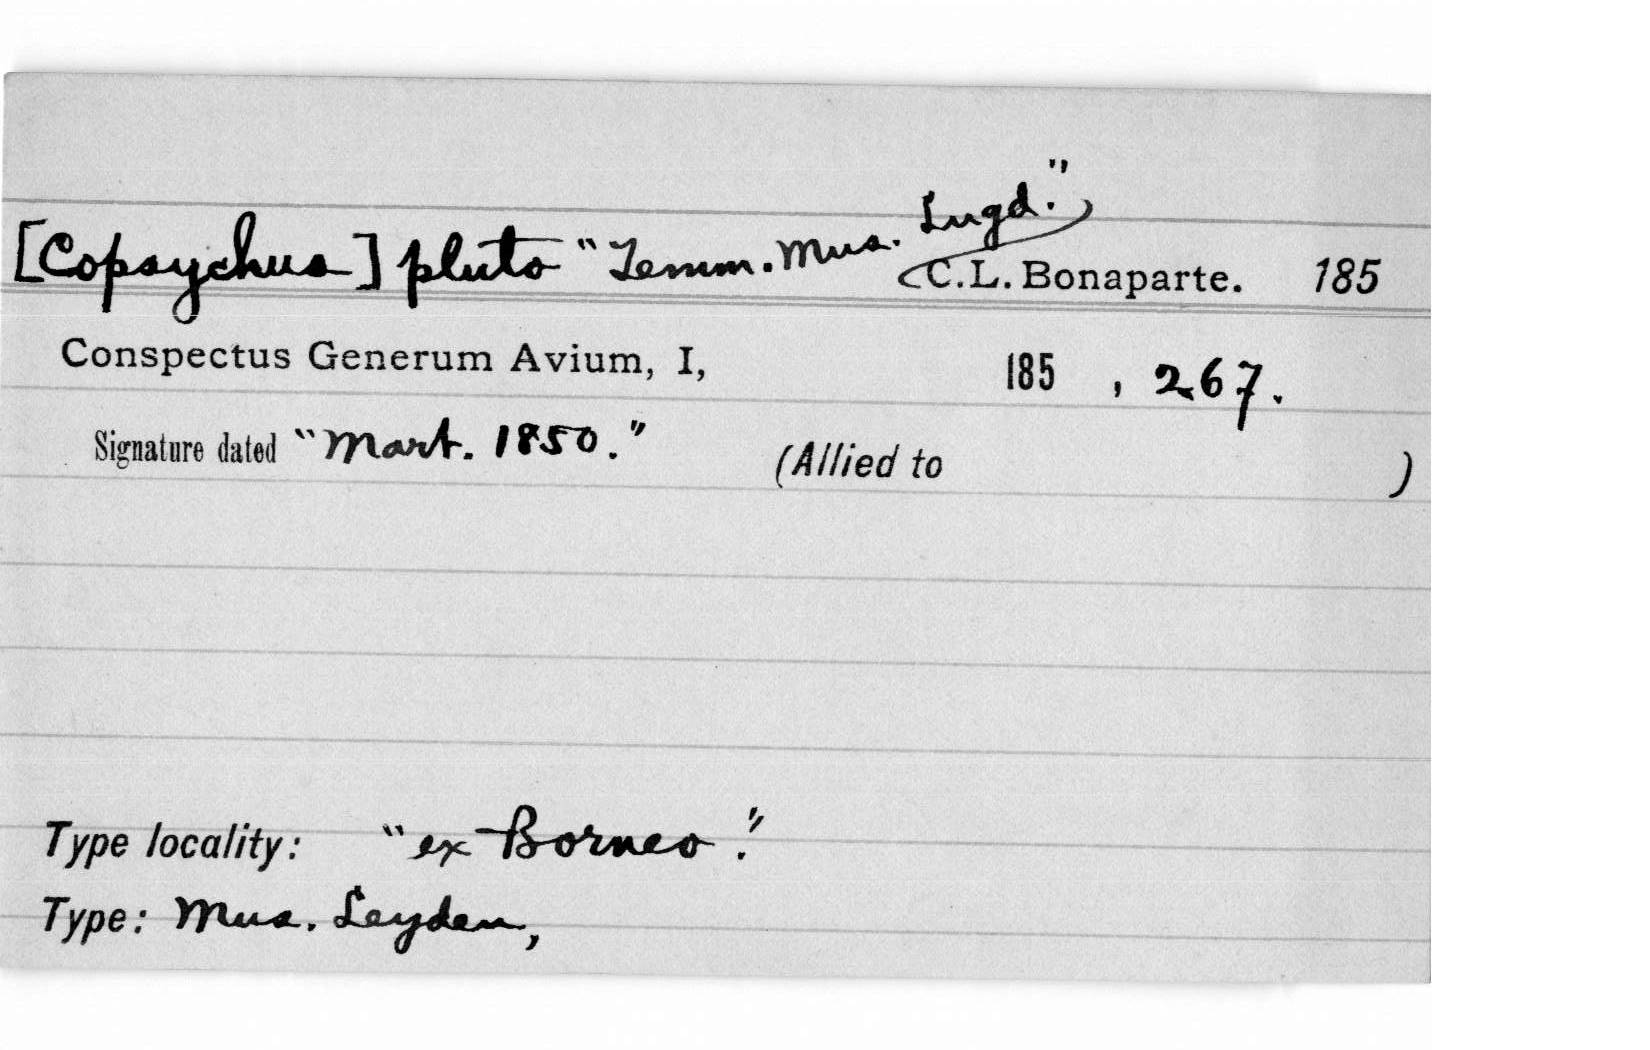 [Copsychus] pluto "Temm. Mus. Lugd." C.L. Bonaparte. 185
Conspectus Generum Avium, I, 185 , 267.
Signature dated "Mart. 1850." (Allied to )
Type locality: "ex Borneo."
Type: Mus. Leyden,